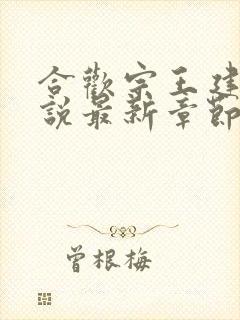 合歡宗王建
說最新章節
曾根梅